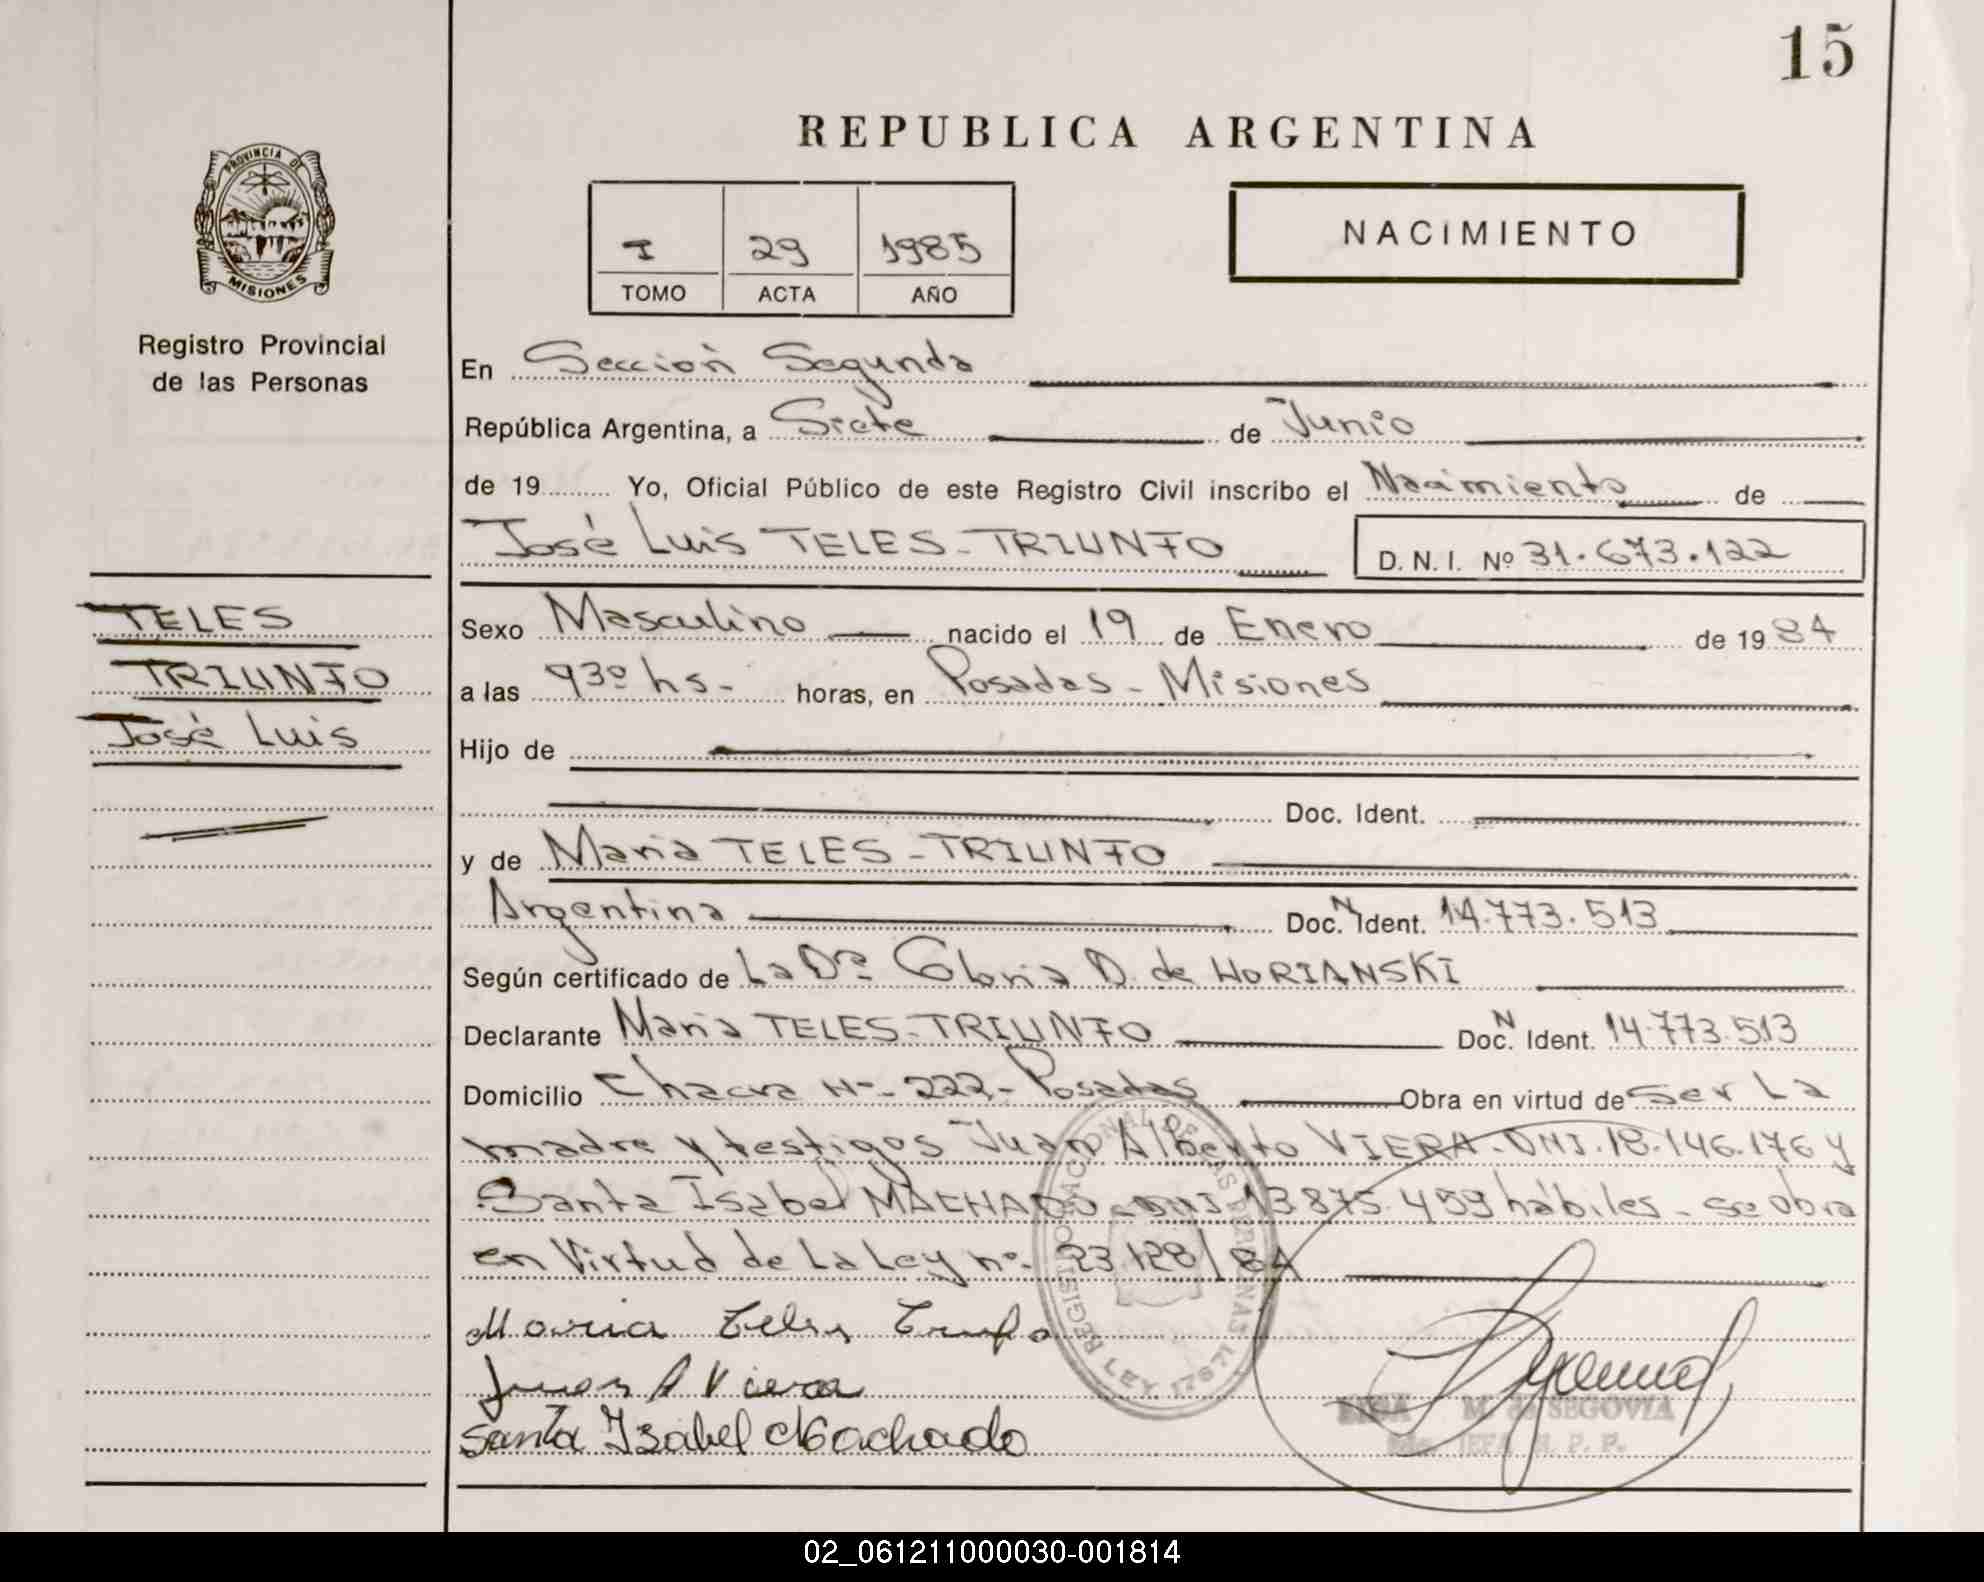 15
REPUBLICA ARGENTINA
PROVINCIA DE
MISIONES
Registro Provincial
de las Personas
I 29 1985
TOMO ACTA AÑO
NACIMIENTO
En Sección Segunda
República Argentina, a Siete de Junio
de 19 Yo, Oficial Público de este Registro Civil inscribo el Nacimiento de
José Luis TELES-TRIUNFO D. N. I. Nº 31.673.122
TELES
TRIUNFO
José Luis
Sexo Masculino nacido el 19 de Enero de 1984
a las 930 hs- horas, en Posadas - Misiones
Hijo de
Doc. Ident.
y de Maria TELES - TRIUNFO
Argentina Doc. N Ident. 14.773.513
Según certificado de La Dra Gloria D. de HORIANSKI
Declarante Maria TELES-TRIUNFO Doc. N Ident. 14.773.513
Domicilio Chacra Nº- 222- Posadas Obra en virtud de Ser La
madre y testigos Juan Alberto VIERA-DNI.18.146.176 y
Santa Isabel MACHADO - DNI 13875.459 hábiles - se obra
en Virtud de La Ley nº- 23.128/84
Maria Teles
Juan A Viera
Santa Isabel Machado
REGISTRO NACIONAL DE LAS PERSONAS
LEY 17671
M. de SEGOVIA
JEFA R. P. P.
02_061211000030-001814